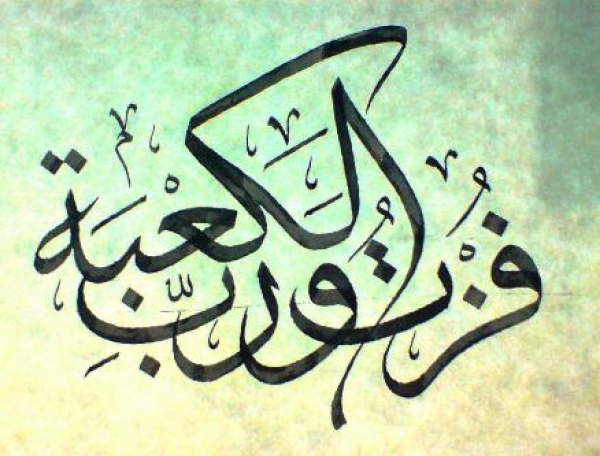 فُزْتُ وَرَبِّ الْكَعْبَةِ